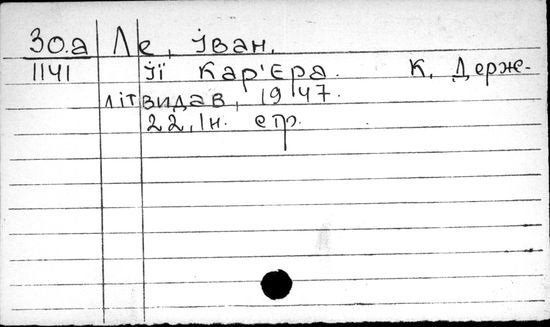 30.а Ле, Іван.
1141 Її Кар'єра. К. Держ-
літвидав, 1947.
22, Ін. стр.